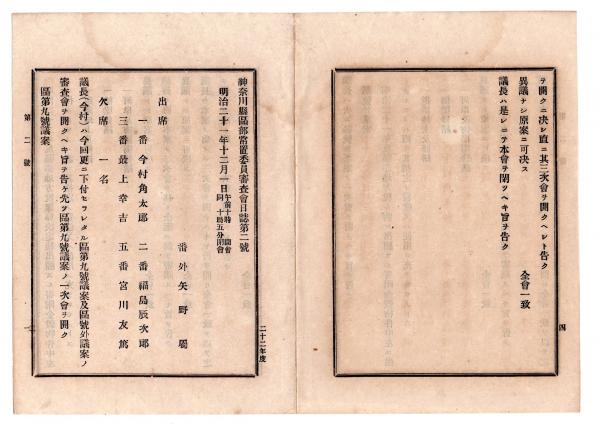 ヲ開クニ決シ直ニ其三次會ヲ開クヘシト告ク
全會一致
異議ナシ原案ニ可決ス
議長ハ是レニテ本會ヲ閉ツヘキ旨ヲ告ク
四
二十二年度
神奈川縣區部常置委員審査會日誌第二號
明治二十一年十二月一日
午前十時 開會
同 十時五分閉會
番外矢野屬
出席
一番今村角太郎 二番福島辰次郎
三番最上幸吉 五番宮川友篤
欠席 一名
議長(今村)ハ今回更ニ下付セラレタル區第九號議案及區號外議案ノ
審査會ヲ開クヘキ旨ヲ告ケ先ツ區第九號議案ノ一次會ヲ開ク
區第九號議案
第二號
一